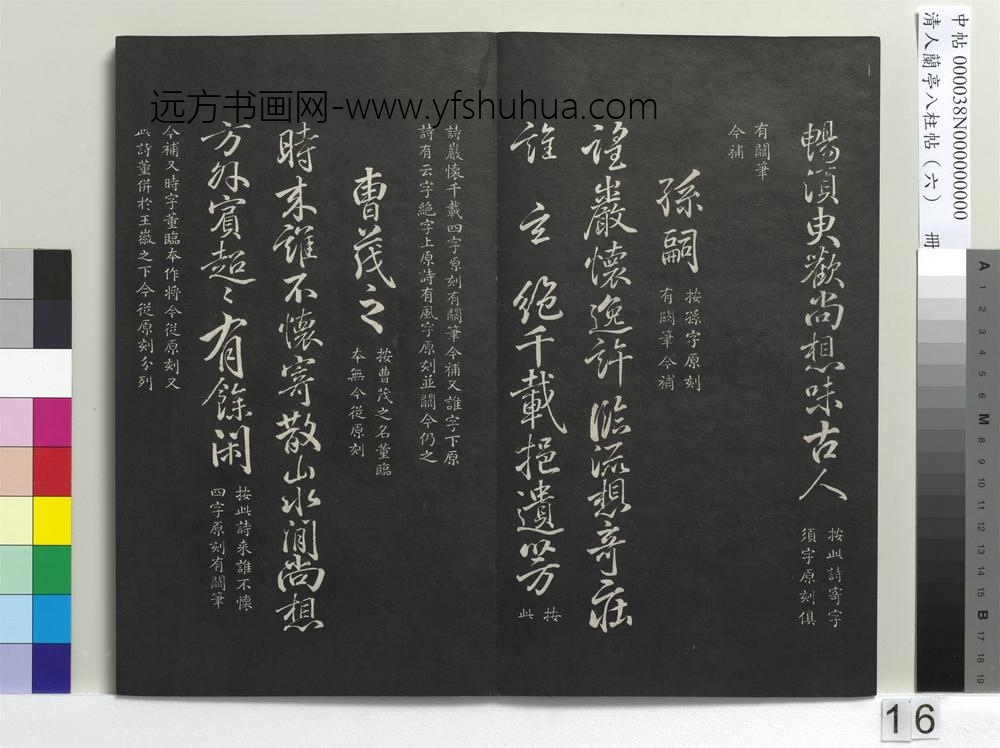 中帖 000038N000000000
清人蘭亭八柱帖（六） 冊
远方书画网-www.yfshuhua.com
暢須史歡尚想味古人
按此詩寄字
須字原刻俱
有闕筆
今補
孫嗣
按孫字原刻
有闕筆今補
望巖懷逸許臨流想奇莊
誰云絕千載挹遺芳
按
此
詩巖懷千載四字原刻有闕筆今補又誰字下原
詩有云字絕字上原詩有風字原刻並闕今仍之
曹茂之
按曹茂之名董臨
本無今從原刻
時來誰不懷寄散山水間尚想
方外賓超〻有餘閑
按此詩来誰不懷
四字原刻有闕筆
今補又時字董臨本作将今從原刻又
此詩董併於王徽之下今從原刻分列
A 1 2 3 4 5 6 M 8 9 10 11 12 13 14 15 B 17 18 19
16